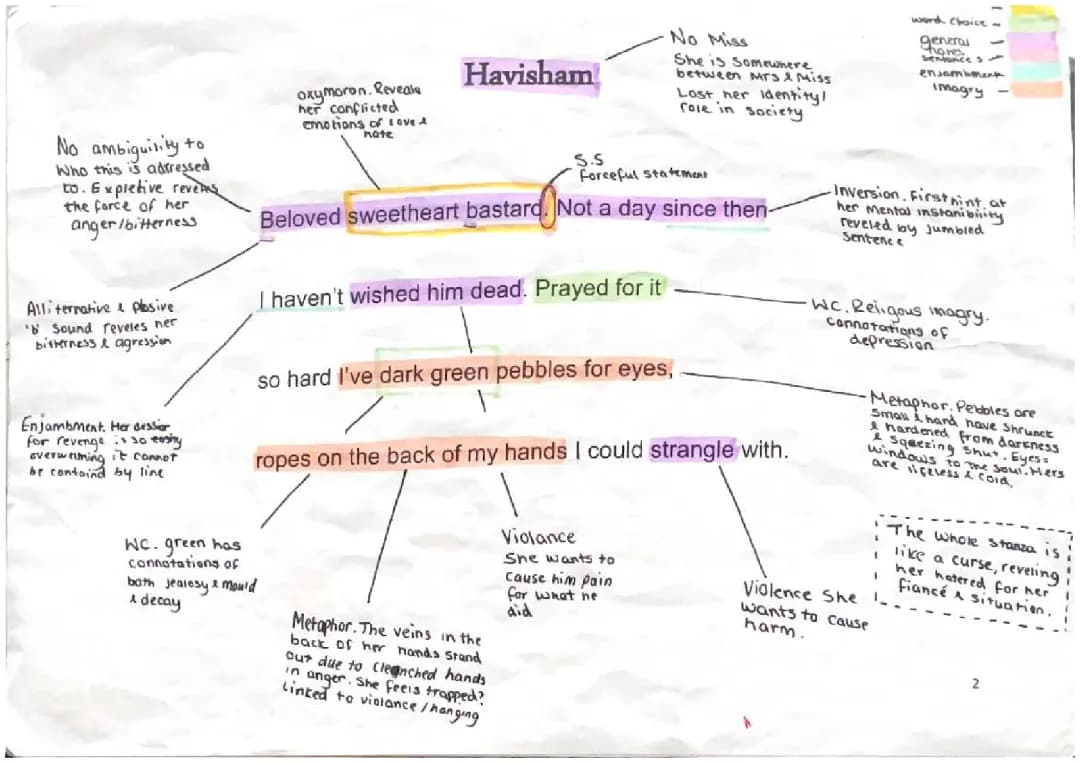 Havisham
No Miss
She is Somewhere
between Mrs & Miss
Lost her Identity/
role in society
word choice -
general
sentences -
enjambment
Imagry -
oxymoron. Reveals
her conflicted
emotions of love &
hate
No ambiguility to
Who this is adressed
to. Expletive reveals
the force of her
anger/bitterness
S.S
forceful statement
Beloved sweetheart bastard. Not a day since then
Inversion. First hint at
her mental instanibility
reveled by jumbled
sentence
Alliternative & plosive
'b' sound reveles her
bitterness & agression
I haven't wished him dead. Prayed for it
WC. Religous imagry.
connotations of
depression
so hard I've dark green pebbles for eyes,
Metaphor. Pebbles are
small & hard, have shrunck
& hardened from darkness
& squeezing shut. Eyes=
windows to the soul. Hers
are lifeless & cold.
Enjambment. Her
for revenge is so
it cannot
be containd by line
ropes on the back of my hands I could strangle with.
WC. green has
connotations of
both jealosy & mould
& decay
Metaphor. The veins in the
back of her hands stand
out due to clenched hands
in anger. She feels trapped?
Linked to violance/hanging
Violance
She wants to
cause him pain
for what he
did
Violence She
wants to cause
harm.
The whole stanza is
like a curse, reveling
her hatered for her
fiancé & situation.
2